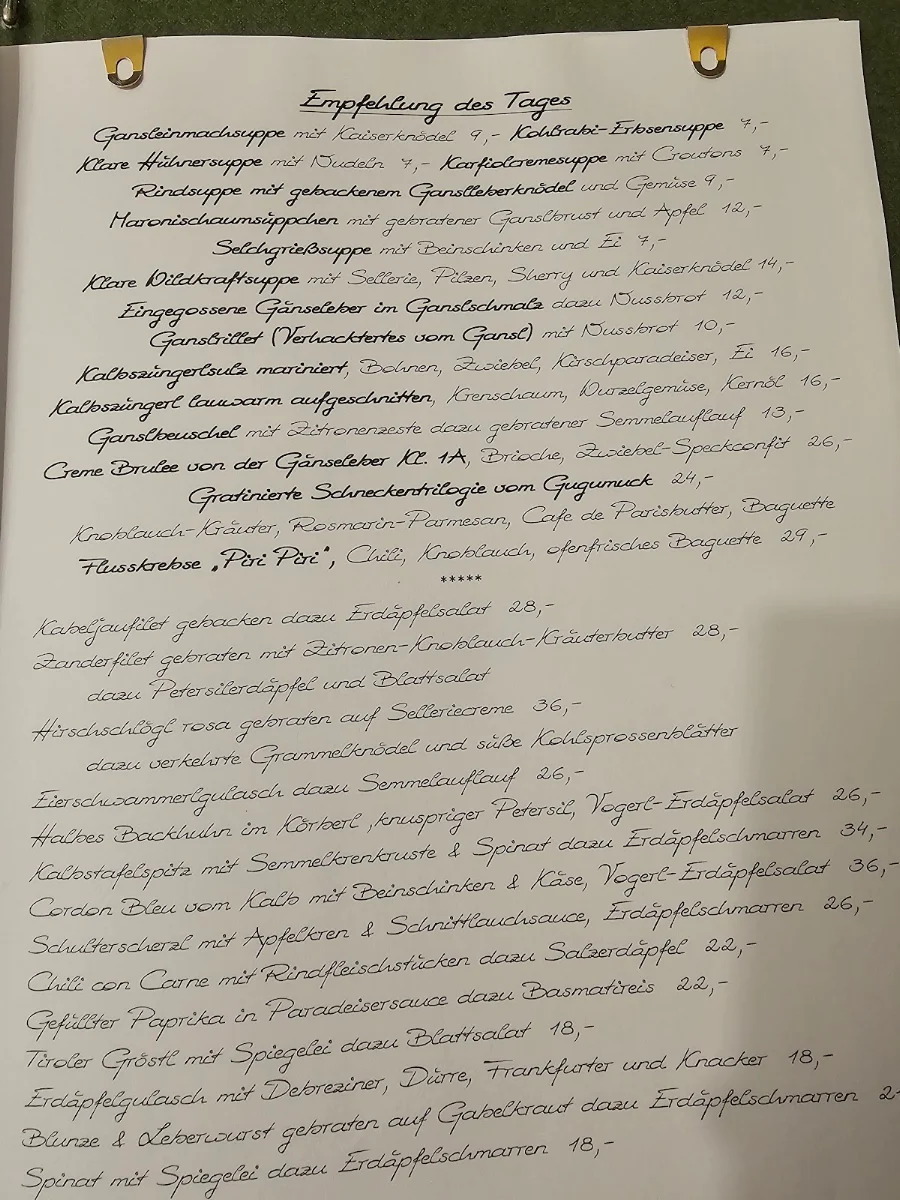 Empfehlung des Tages
Gansleinmachsuppe mit Kaiserknödel 9,- Kohlrabi-Erbsensuppe 7,-
Klare Hühnersuppe mit Nudeln 7,- Karfiolcremesuppe mit Croutons 7,-
Rindsuppe mit gebackenem Ganslleberknödel und Gemüse 9,-
Maronischaumsüppchen mit gebratener Ganslbrust und Apfel 12,-
Selchgrießsuppe mit Beinschinken und Ei 7,-
Klare Wildkraftsuppe mit Sellerie, Pilzen, Sherry und Kaiserknödel 14,-
Eingegossene Gänseleber im Ganslschmalz dazu Nussbrot 12,-
Ganslrillet (Verhacktertes vom Gansl) mit Nussbrot 10,-
Kalbszüngerlsulz mariniert, Bohnen, Zwiebel, Kirschparadeiser, Ei 16,-
Kalbszüngerl lauwarm aufgeschnitten, Krenschaum, Wurzelgemüse, Kernöl 16,-
Ganslbeuschel mit Zitronenzeste dazu gebratener Semmelauflauf 13,-
Creme Brulee von der Gänseleber Kl. 1A, Brioche, Zwiebel-Speckconfit 26,-
Gratinierte Schneckentrilogie vom Gugumuck 24,-
Knoblauch-Kräuter, Rosmarin-Parmesan, Cafe de Parisbutter, Baguette
Flusskrebse „Piri Piri", Chili, Knoblauch, ofenfrisches Baguette 29,-
*****
Kabeljaufilet gebacken dazu Erdäpfelsalat 28,-
Zanderfilet gebraten mit Zitronen-Knoblauch-Kräuterbutter 28,-
dazu Petersilerdäpfel und Blattsalat
Hirschschlögl rosa gebraten auf Selleriecreme 36,-
dazu verkehrte Grammelknödel und süße Kohlsprossenblätter
Eierschwammerlgulasch dazu Semmelauflauf 26,-
Halbes Backhuhn im Körberl ,knuspriger Petersil, Vogerl-Erdäpfelsalat 26,-
Kalbstafelspitz mit Semmelkrenkruste & Spinat dazu Erdäpfelschmarren 34,-
Cordon Bleu vom Kalb mit Beinschinken & Käse, Vogerl-Erdäpfelsalat 36,-
Schulterscherzl mit Apfelkren & Schnittlauchsauce, Erdäpfelschmarren 26,-
Chili con Carne mit Rindfleischstücken dazu Salzerdäpfel 22,-
Gefüllter Paprika in Paradeisersauce dazu Basmatireis 22,-
Tiroler Gröstl mit Spiegelei dazu Blattsalat 18,-
Erdäpfelgulasch mit Debreziner, Dürre, Frankfurter und Knacker 18,-
Blunze & Leberwurst gebraten auf Gabelkraut dazu Erdäpfelschmarren
Spinat mit Spiegelei dazu Erdäpfelschmarren 18,-